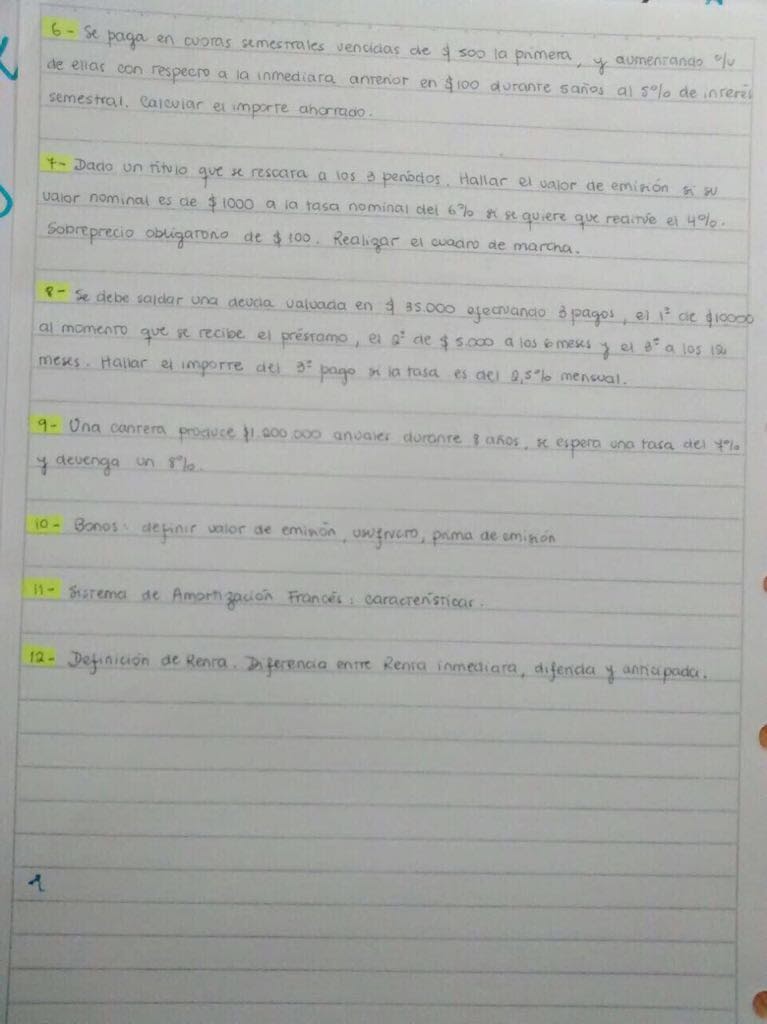 6- Se paga en cuotas semestrales vencidas de $ 500 la primera, y aumentando c/u
de ellas con respecto a la inmediata anterior en $100 durante 5 años al 5% de interés
semestral. Calcular el importe ahorrado.
7- Dado un título que se rescata a los 3 períodos. Hallar el valor de emisión si su
valor nominal es de $1000 a la tasa nominal del 6% si se quiere que reditúe el 4%.
Sobreprecio obligatorio de $100. Realizar el cuadro de marcha.
8- Se debe saldar una deuda valuada en $ 35.000 efectuando 3 pagos, el 1º de $10000
al momento que se recibe el préstamo, el 2º de $ 5.000 a los 6 meses y el 3º a los 12
meses. Hallar el importe del 3º pago si la tasa es del 2,5% mensual.
9- Una cantera produce $1.200.000 anuales durante 8 años, se espera una tasa del 7%
y devenga un 8%.
10- Bonos: definir valor de emisión, usufructo, prima de emisión
11- Sistema de Amortización Francés: características.
12- Definición de Renta. Diferencia entre Renta inmediata, diferida y anticipada.